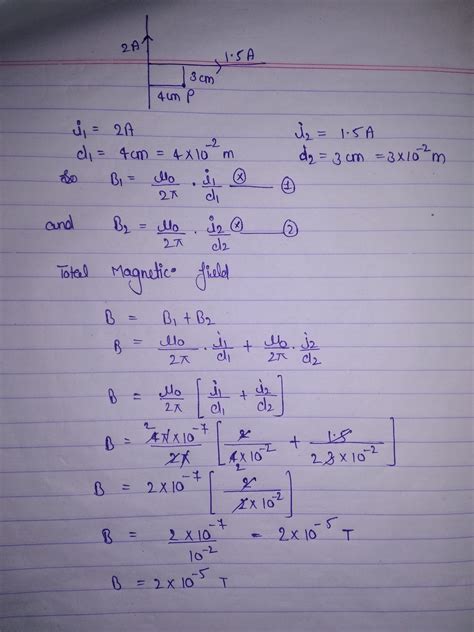 2A
1.5A
3cm
4cm P
i₁ = 2A i₂ = 1.5A
d₁ = 4cm = 4×10⁻² m d₂ = 3cm = 3×10⁻² m
B₁ = μ₀/2π · i₁/d₁ ⊗ — ①
and B₂ = μ₀/2π · i₂/d₂ ⊗ — ②
Total Magnetic field
B = B₁ + B₂
B = μ₀/2π · i₁/d₁ + μ₀/2π · i₂/d₂
B = μ₀/2π [ i₁/d₁ + i₂/d₂ ]
B = 2 4π×10⁻⁷/2π [ 2/4×10⁻² + 1.5/2 3×10⁻² ]
B = 2×10⁻⁷ [ 2/2×10⁻² ]
B = 2×10⁻⁷/10⁻² = 2×10⁻⁵ T
B = 2×10⁻⁵ T